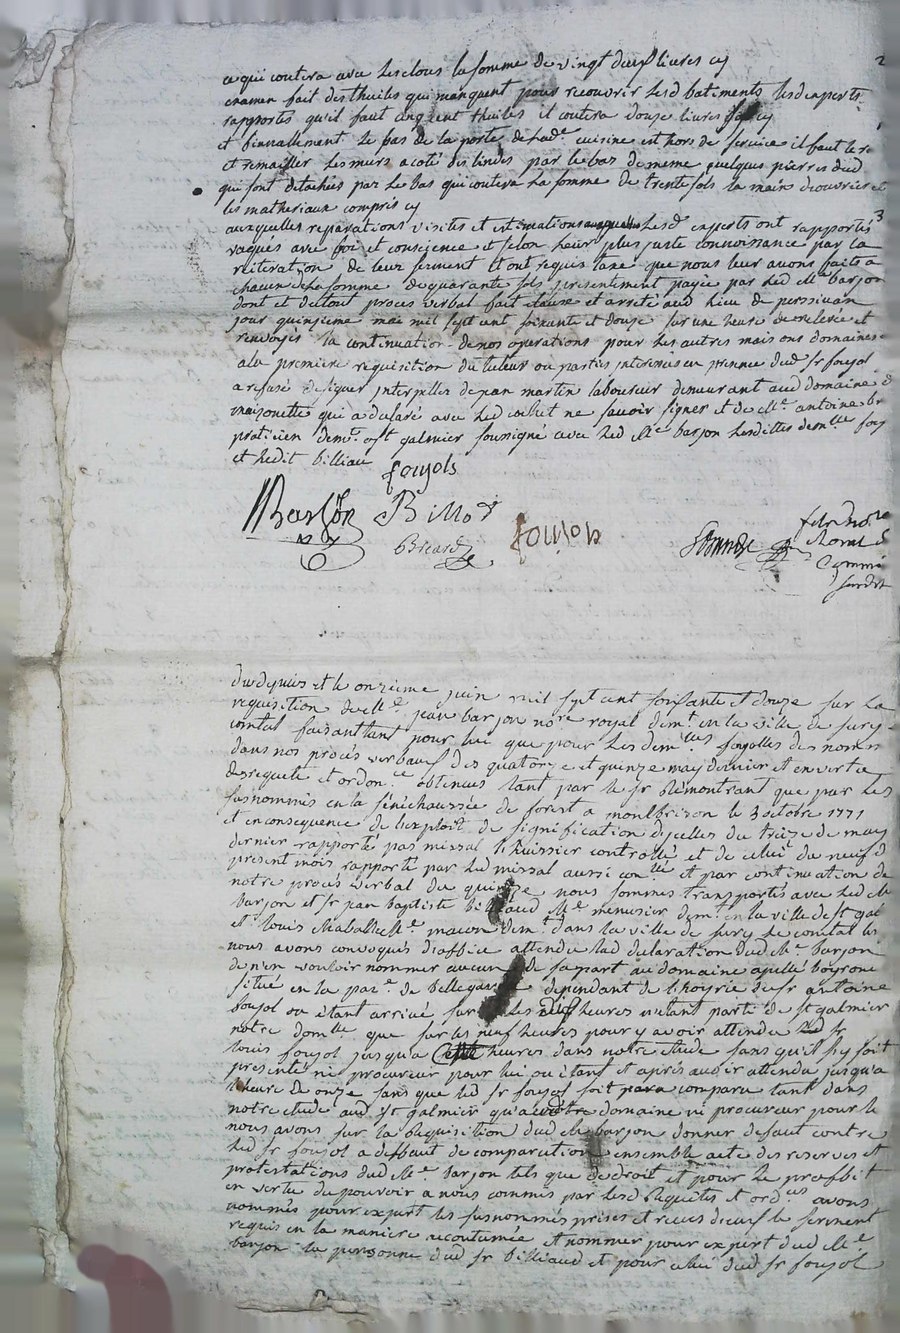 ce qui coutera avec les clous la somme de vingt deux livres cy
examen fait des thuiles qui manquent pour recouvrir lesd batiments lesd experts
rapportés qu'il faut cinq cent thuiles il coutera douze livres
et finnallement le pas de la porte de lade cuisine est hors de service il faut le
et remailler les murs a coté des lindes par le bas de meme quelques pierres dud
qui sont détachés par le bas qui coutera la somme de trente sols la main d'ouvrier et
les matheriaux compris cy
auxquelles reparations visites et estimations lesd experts ont rapportés
vaqués avec foi et conscience et selon leur plus juste connoissance par la
reiteration de leur serment et ont requis taxe que nous leur avons faite a
chacun de la somme de quarante sols presentement payée par led Me barjon
dont et du tout proces verbal fait clause et arreté aud lieu de
jour quinzieme mai mil sept cent soixante et douze sur une heure de relevée et
renvoyés la continuation de nos operations pour les autres maisons domaines
a la premiere requisition du tuteur ou parties interessées en presence dud sr foujol
a refusé de signer interpellé de jean martin laboureur demeurant aud domaine de
maisonette qui a declaré avec led colliet ne savoir signer et de Me antoine
praticien demt a st galmier soussigné avec led Me barjon lesdittes demlles
et ledit billiau
foujols
Barjon Billod
Bicard
foujols
royal
commis
susdit
du depuis et le onzieme juin mil sept cent soixante et douze sur la
requisition de Me jean barjon nore royal demt en la ville de sury
comtal faisant tant pour lui que pour les demlles foujolles des noms
dans nos procès verbaux des quatorze et quinze may dernier et en vertu
des requete et ordonce obtenues tant par le sr remontrant que par les
susnommés en la sénéchaussée de forest a montbrison le 3 octobre 1771
et en consequence de l'exploit de signification d'icelles du treize de may
dernier rapporté par missal l'huissier controllé et de celui du neuf du
present mois rapporté par led missal aussi conllé et par continuation de
notre procès verbal du quinze nous sommes transportés avec led Me
barjon et sr jean baptiste billiaud Me menusier demt en la ville de st gal
et louis chaballe Me macon demt dans la ville de sury le comtal les
nous avons convoqués d'office attendu la declaration dud Me barjon
de n'en vouloir nommer aucun de sa part au domaine apellé boyrone
situé en la pare de bellegarde dependant de l'hoyrie de sr antoine
foujol ou etant arrivé sur les dix heures etant parti de st galmier
notre domlle que sur les neuf heures pour y avoir attendu led sr
louis foujol jusqu'a cette heures dans notre etude sans qu'il s'y soit
presenté ni procureur pour lui ou etant et après avoir attendu jusqu'a
l'heure de onze sans que led sr foujol soit comparu tant dans
notre etude aud st galmier qu'aud domaine ni procureur pour lui
nous avons sur la requisition dud Me barjon donner defaut contre
led sr foujol a deffaut de comparution ensemble acte des reserves et
protestations dud Me barjon tels que de droit et pour le proffit
en vertu du pouvoir a nous commis par lesd requetes et ordces avons
nommés pour expert les susnommés prises et recues d'eux le serment
requis en la maniere accoutumée et nommer pour expert dud Me
barjon la personne dud sr billiaud et pour celui dud sr foujol